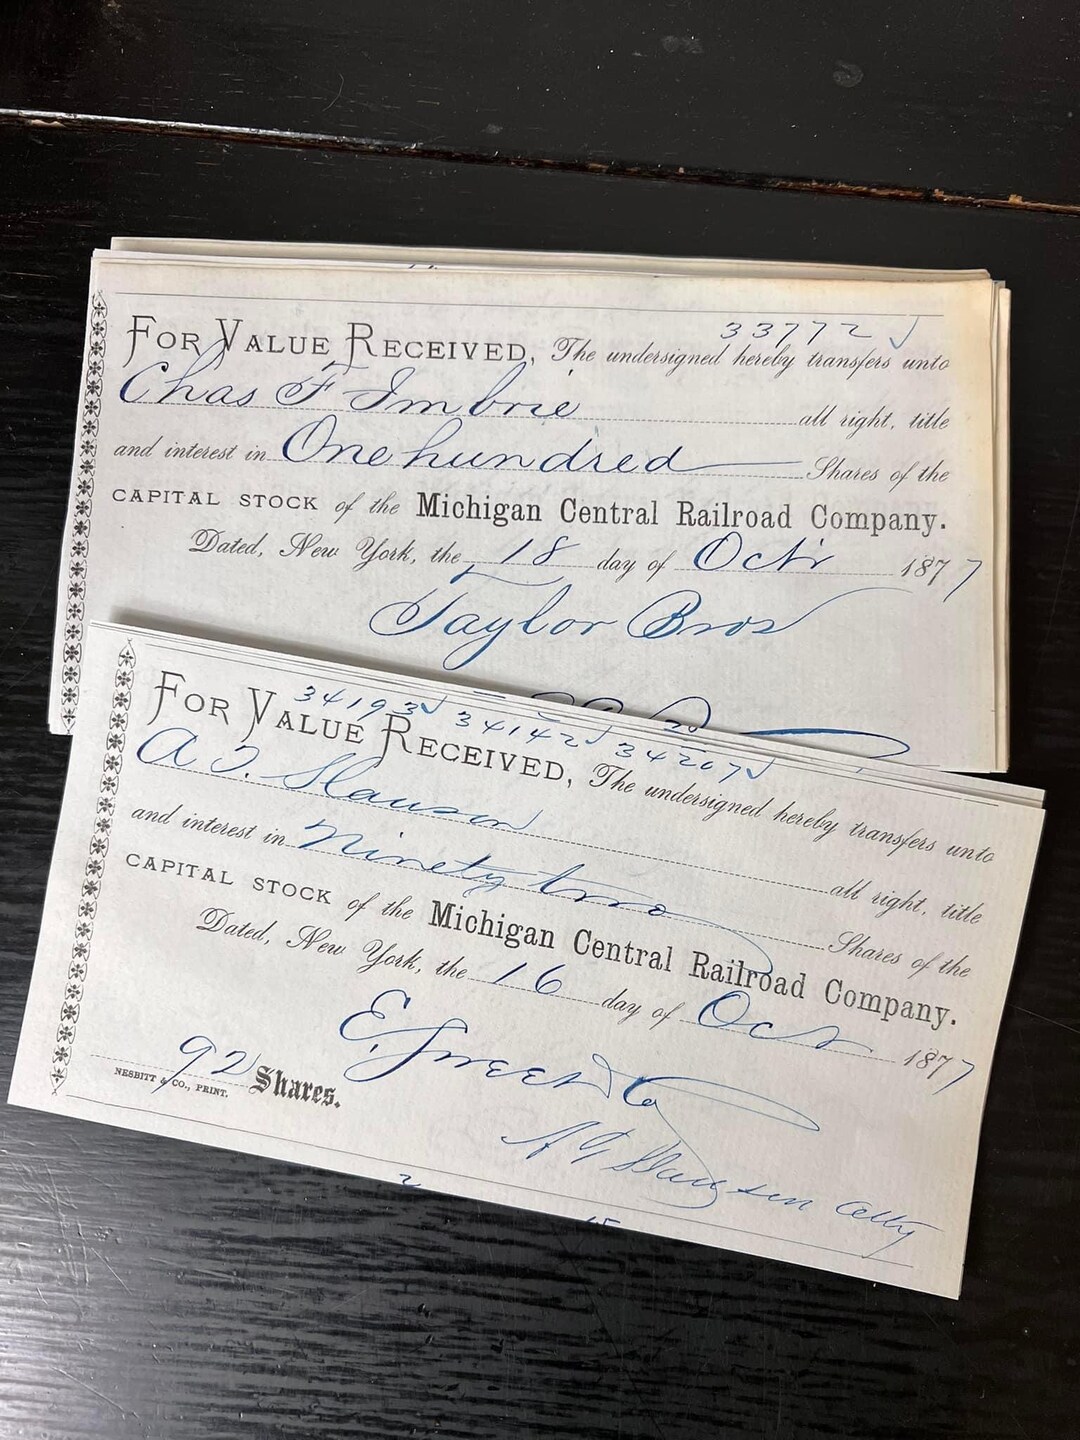 33772
FOR VALUE RECEIVED, The undersigned hereby transfers unto
Chas F Imbrie all right, title
and interest in One hundred Shares of the
CAPITAL STOCK of the Michigan Central Railroad Company.
Dated, New York, the 18 day of Octr 1877
Taylor Bros
34193 34142 34207
FOR VALUE RECEIVED, The undersigned hereby transfers unto
A T. Slauson all right, title
and interest in Ninety two Shares of the
CAPITAL STOCK of the Michigan Central Railroad Company.
Dated, New York, the 16 day of Oct 1877
E. Sweet & Co
92 Shares.
NESBITT & CO., PRINT.
A T Slauson Atty